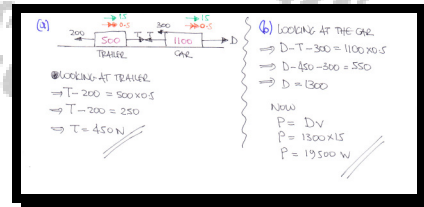 (a)
15
0.5
300
15
0.5
200
500
T
T
1100
D
TRAILER
CAR
LOOKING AT TRAILER
⇒ T - 200 = 500×0.5
⇒ T - 200 = 250
⇒ T = 450 N
(b) LOOKING AT THE CAR
⇒ D - T - 300 = 1100×0.5
⇒ D - 450 - 300 = 550
⇒ D = 1300
NOW
P = Dv
P = 1300×15
P = 19500 W